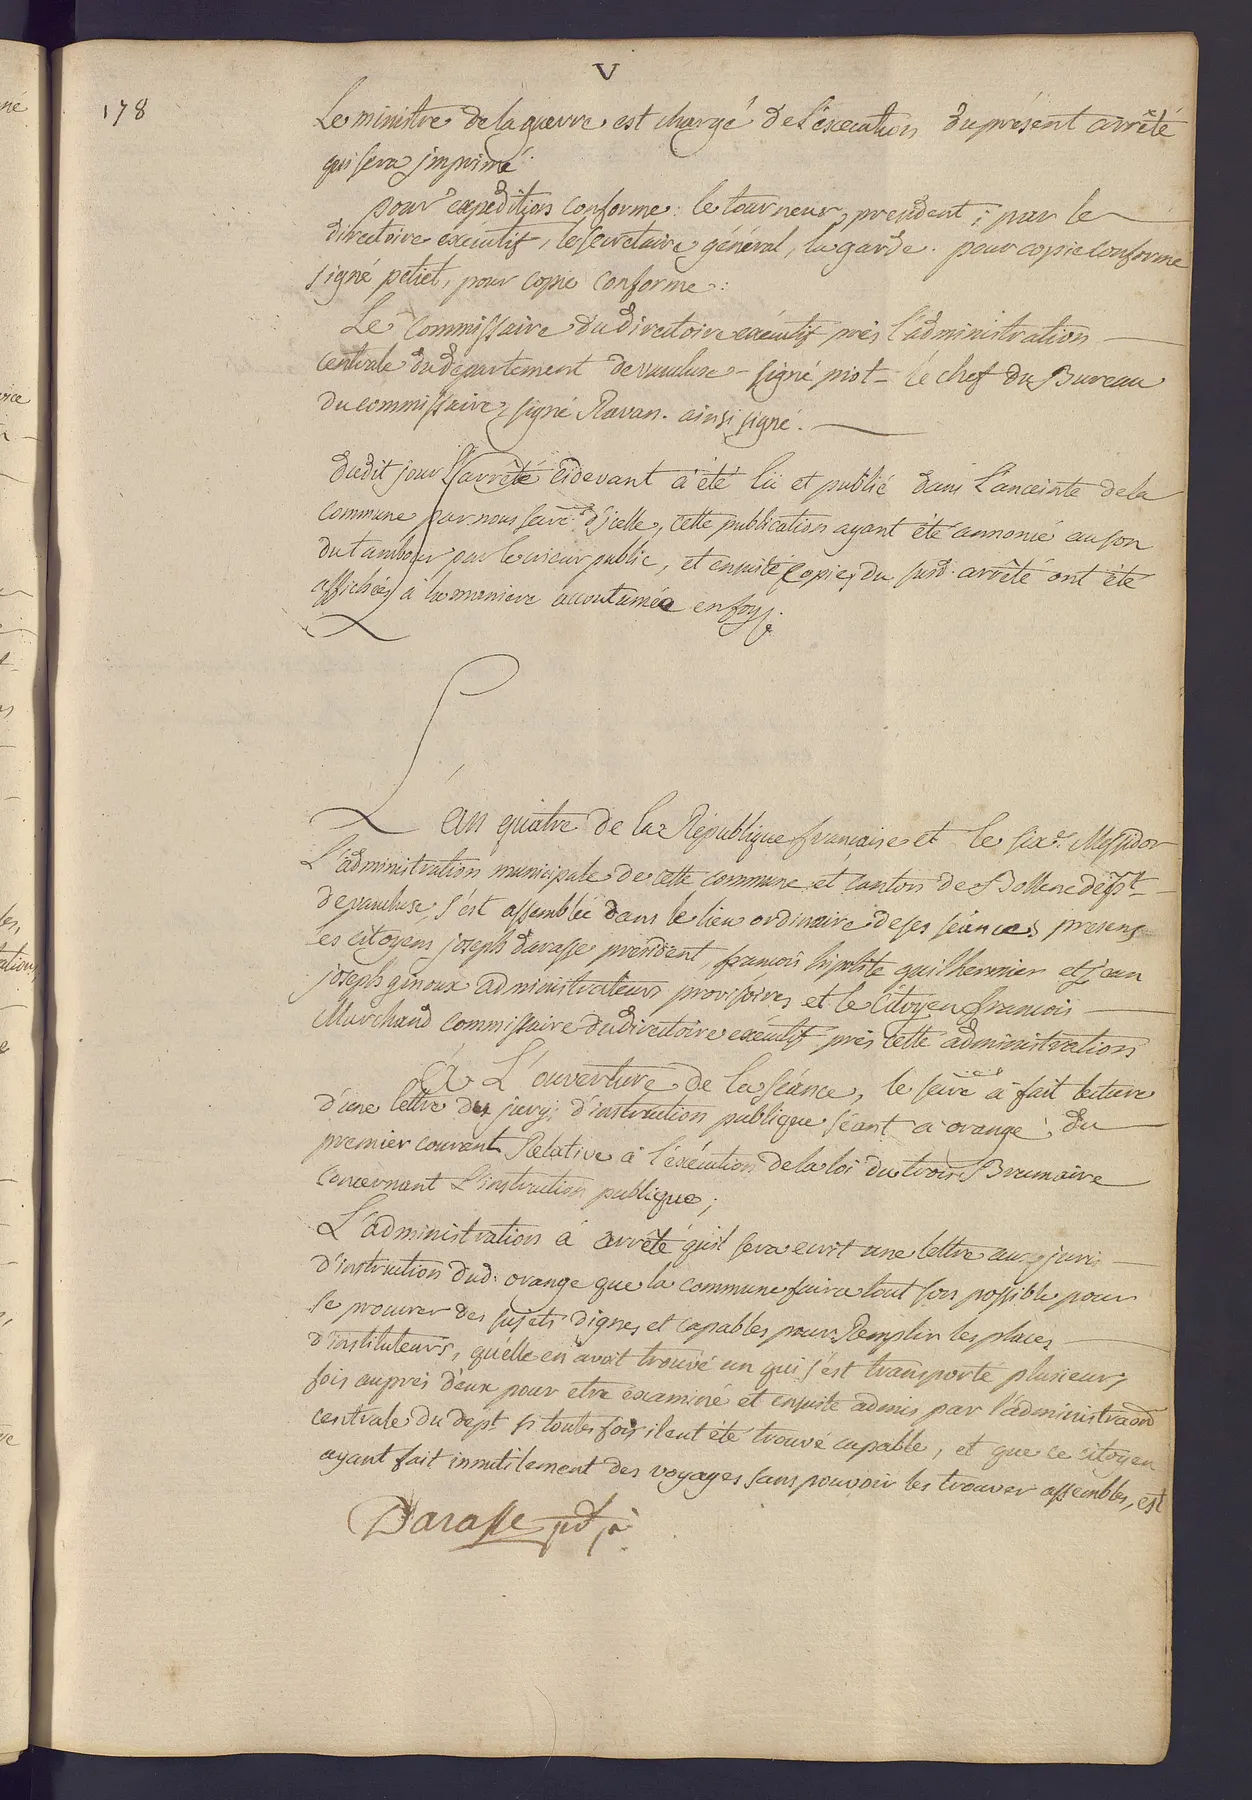 178
V
Le ministre de la guerre est chargé de L'éxecution du présent arrêté
qui sera jmprimé.
pour expedition conforme: le tourneur, president; par le
directoire executif, le secretaire général, la garde. pour copie conforme
signé petiet, pour copie conforme:
Le commissaire du directoire exécutif près l'administration
centrale du departement de vaucluse - signé piot - le chef du Bureau
du commissaire, signé Ravan. ainsi signé.
dudit jour L'arrêté cidevant à été lü et publié dans L'anceinte de la
commune par nous secre. d'jcelle, cette publication ayant été annoncé au son
du tambour par le crieur public, et ensuite copies du susd. arrêté ont été
affichées à la maniere accoutumée en foy
L'an quatre de la République francaise et le six. Messidor
L'administration municipale de cette commune et canton de Bollene dépt.
de vaucluse, s'est assemblée dans le lieu ordinaire de ses séances presens
les citoyens joseph darasse president, francois hipolite guilhermier et jean
joseph ginoux administrateurs provisoires et le Citoyen francois
Marchand commissaire du directoire exécutif près cette administration
À L'ouverture de la séance, le secre à fait lecture
d'une lettre du jury d'instruction publique séant a orange, du
premier courant Relative à l'éxécution de la loi du trois Brumaire
concernant L'instruction publique;
L'administration à arrêté qu'il sera ecrit une lettre aux juri
d'instruction dud. orange que la commune faira tout son possible pour
se procurer des sujets dignes et capables pour Remplir les places
d'instituteurs, quelle en avoit trouvé un qui s'est transporté plusieurs
fois aupres d'eux pour etre éxaminé et ensuite admis par l'administraon
centrale du dept. si toutes fois il eut été trouvé capable, et que ce citoyen
ayant fait innutilement des voyages sans pouvoir les trouver assemblés, est
Darasse pdt